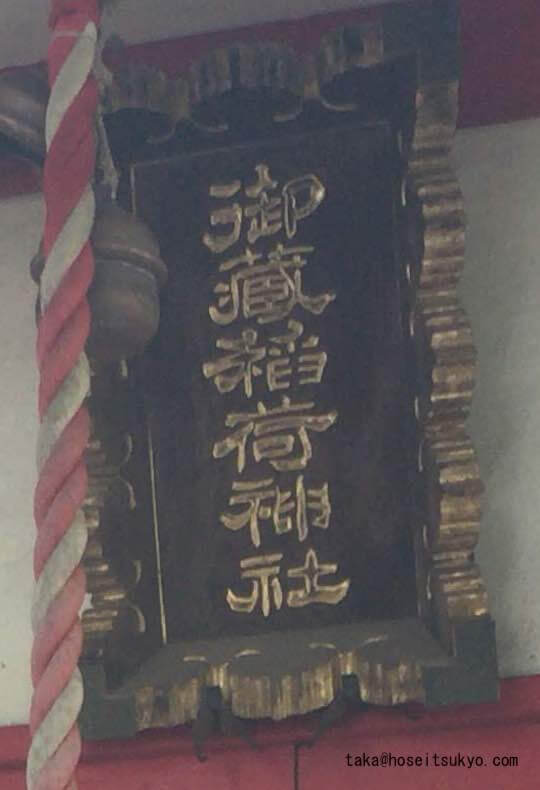 御藏稻荷神社
taka@hoseitsukyo.com